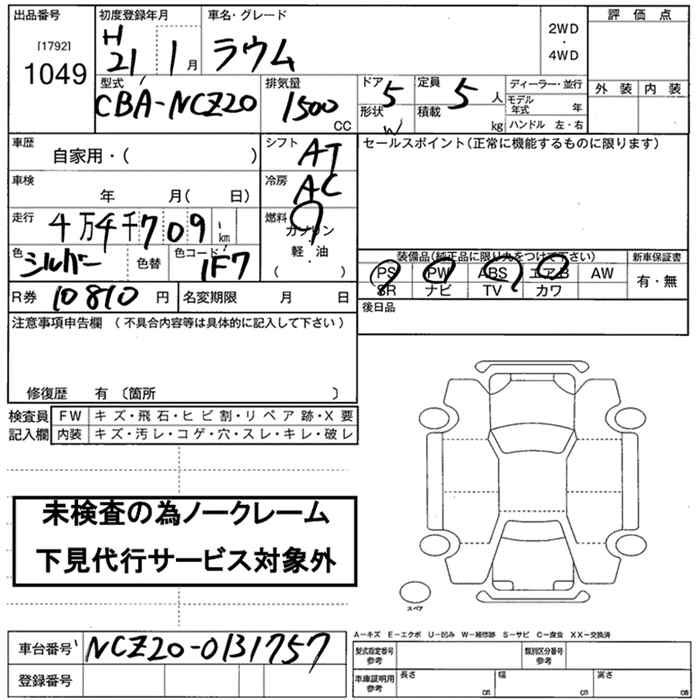 出品番号
[1792]
1049
初度登録年月
H
21 1 月
車名・グレード
ラウム
2WD
・
4WD
評 価 点
外 装 内 装
型式
CBA-NCZ20
排気量
1500
CC
ドア 5
形状 W
定員 5 人
積載 kg
ディーラー・並行
モデル年式 年
ハンドル 左・右
車歴
自家用・( )
シフト AT
セールスポイント(正常に機能するものに限ります)
車検
年 月( 日)
冷房 AC
走行 4万4千709 km
燃料
ガソリン
軽・油
( )
色 シルバー
色替
色コード 1F7
装備品(純正品に限り丸をつけて下さい)
新車保証書
PS PW ABS エアB AW
SR ナビ TV カワ
有・無
R券 10810 円
名変期限 月 日
後日品
注意事項申告欄 (不具合内容等は具体的に記入して下さい)
修復歴 有 〔箇所 〕
検査員
記入欄
FW キズ・飛石・ヒビ割・リペア跡・X要
内装 キズ・汚レ・コゲ・穴・スレ・キレ・破レ
未検査の為ノークレーム
下見代行サービス対象外
スペア
車台番号 NCZ20-0131757
登録番号
A-キズ E-エクボ U-凹み W-補修跡 S-サビ C-腐食 XX-交換済
型式指定番号
参考
類別区分番号
参考
車庫証明用
参考
長さ cm
幅 cm
高さ cm